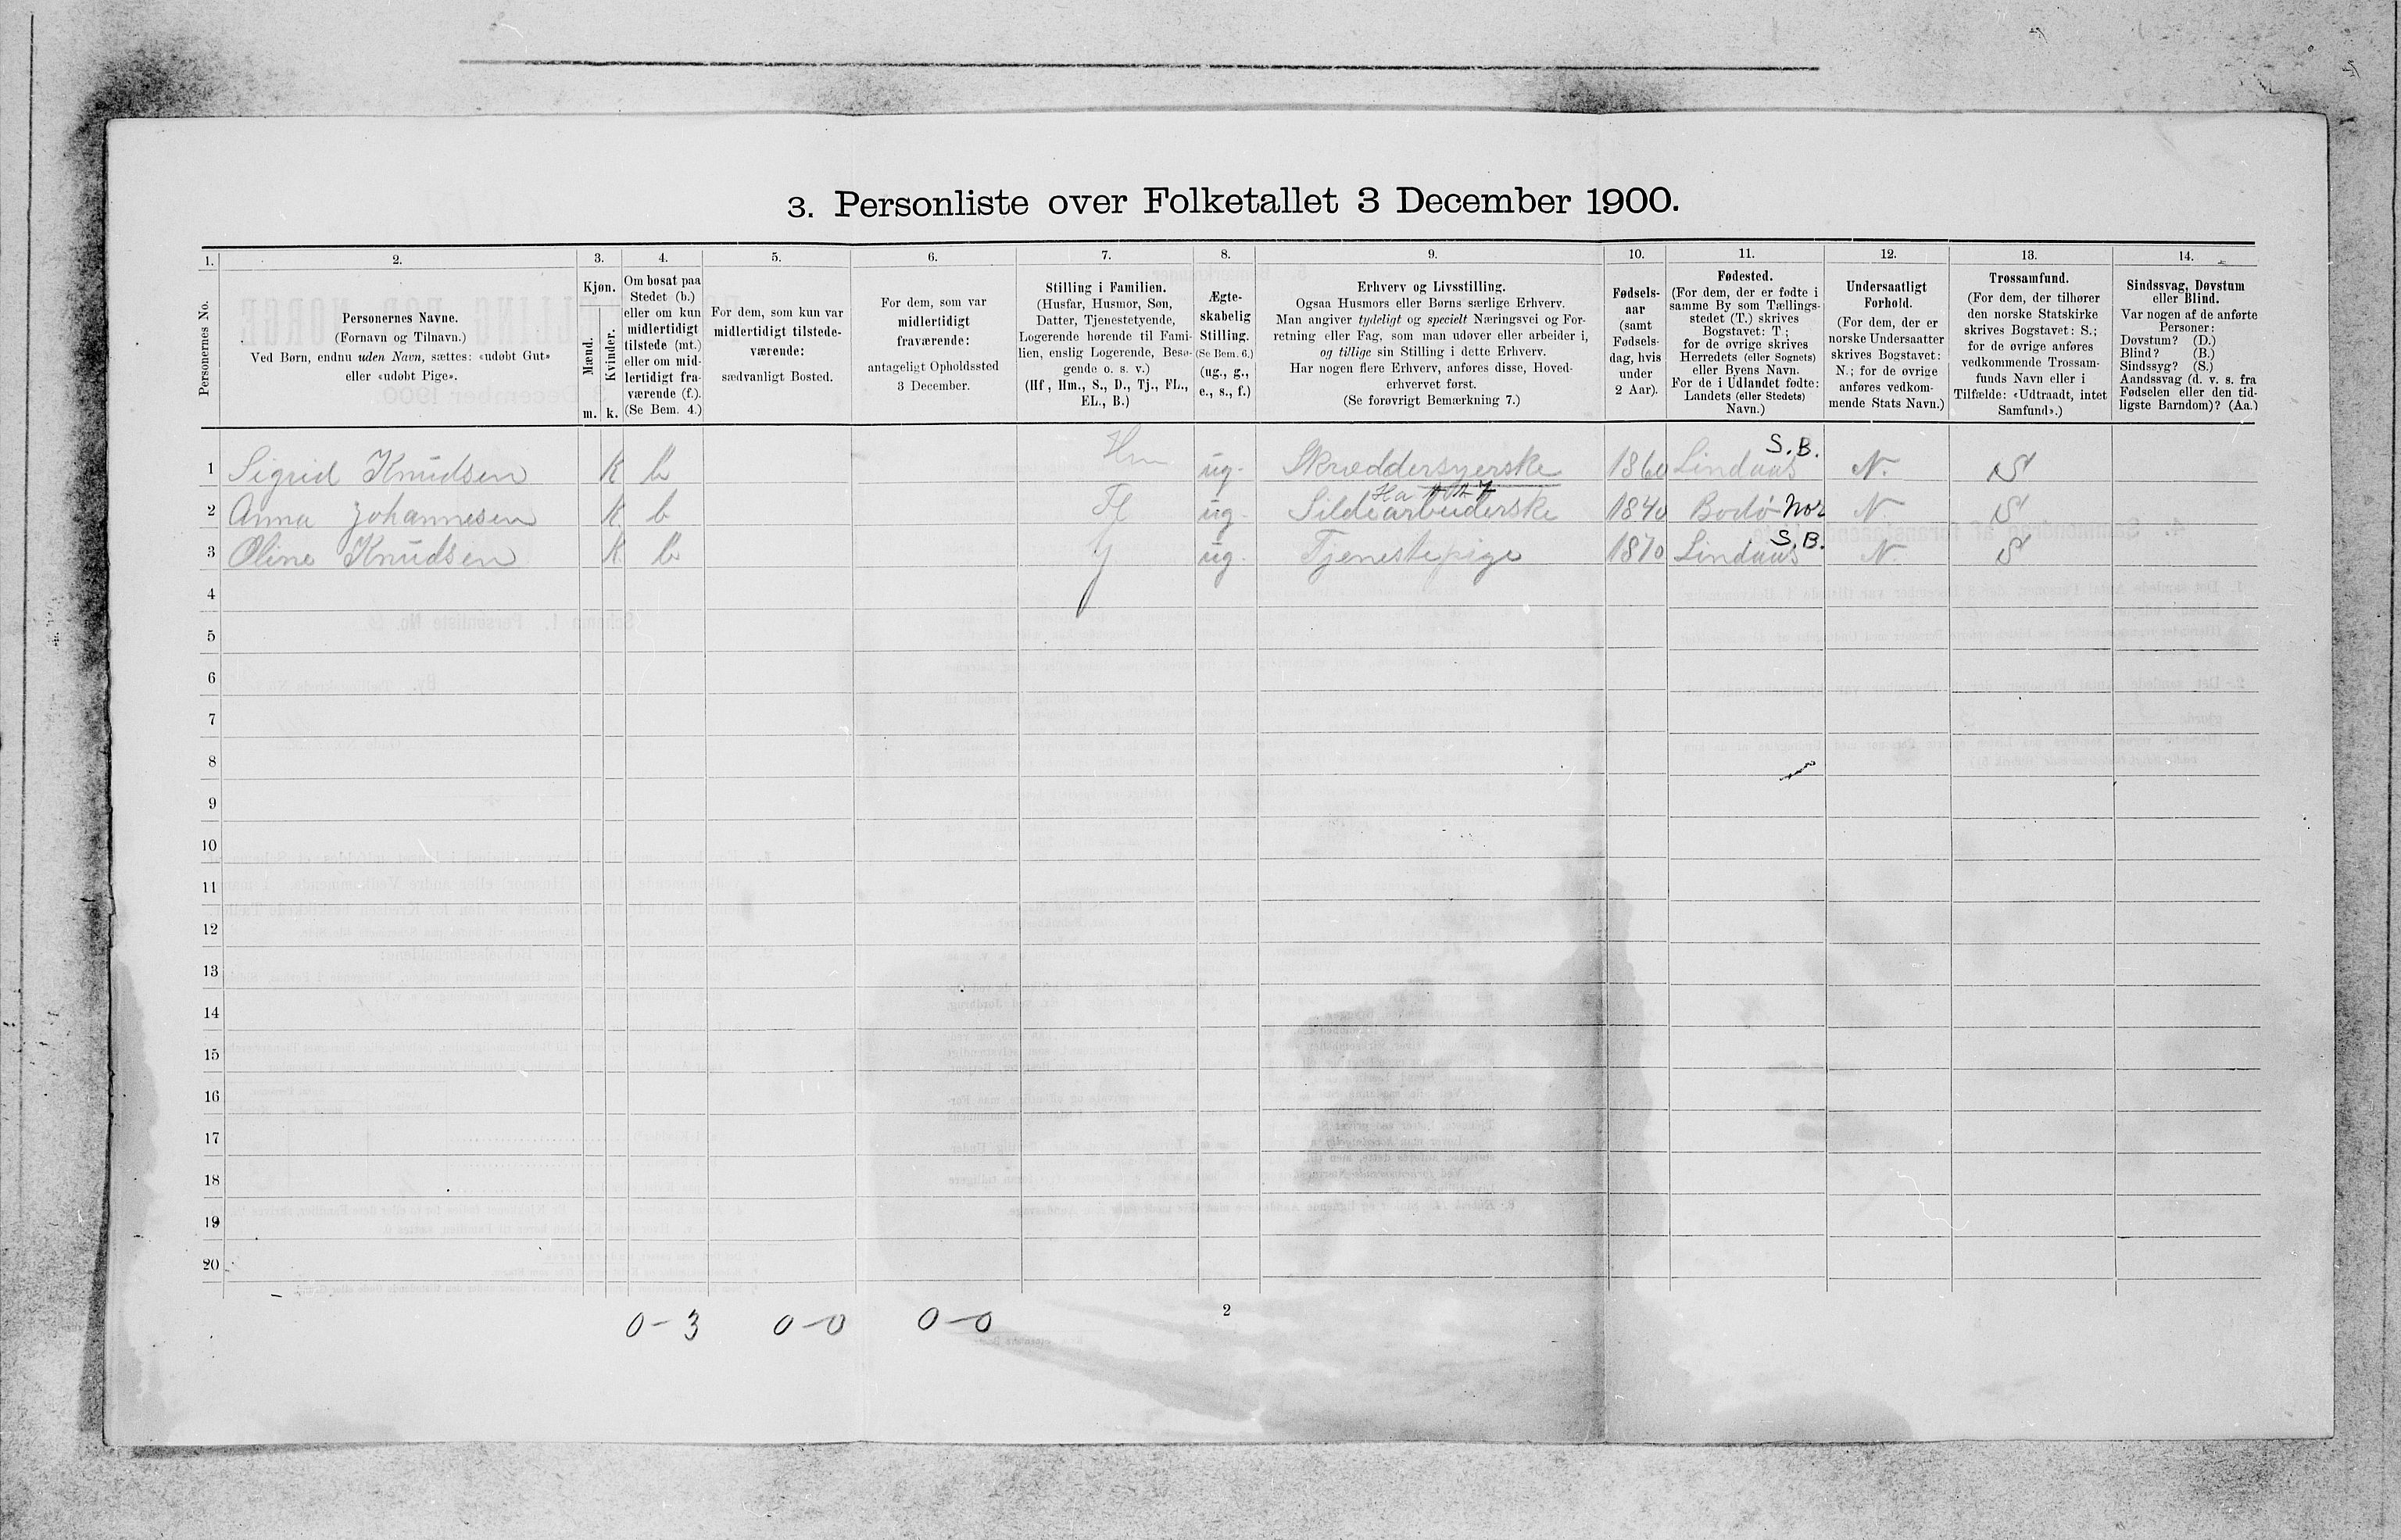 3. Personliste over Folketallet 3 December 1900.
1. 2. 3. 4. 5. 6. 7. 8. 9. 10. 11. 12. 13. 14.
Personernes No.
Personernes Navne.
(Fornavn og Tilnavn.)
Ved Børn, endnu uden Navn, sættes: «udøbt Gut»
eller «udøbt Pige».
Kjøn.
Mænd.
Kvinder.
m. k.
Om bosat paa
Stedet (b.)
eller om kun
midlertidigt
tilstede (mt.)
eller om mid-
lertidigt fra-
værende (f.).
(Se Bem. 4.)
For dem, som kun var
midlertidigt tilstede-
værende:
sædvanligt Bosted.
For dem, som var
midlertidigt
fraværende:
antageligt Opholdssted
3 December.
Stilling i Familien.
(Husfar, Husmor, Søn,
Datter, Tjenestetyende,
Logerende hørende til Fami-
lien, enslig Logerende, Besø-
gende o. s. v.)
(Hf, Hm., S., D., Tj., FL.,
EL., B.)
Ægte-
skabelig
Stilling.
(Se Bem. 6.)
(ug., g.,
e., s., f.)
Erhverv og Livsstilling.
Ogsaa Husmors eller Børns særlige Erhverv.
Man angiver tydeligt og specielt Næringsvei og For-
retning eller Fag, som man udøver eller arbeider i,
og tillige sin Stilling i dette Erhverv.
Har nogen flere Erhverv, anføres disse, Hoved-
erhvervet først.
(Se forøvrigt Bemærkning 7.)
Fødsels-
aar
(samt
Fødsels-
dag, hvis
under
2 Aar).
Fødested.
(For dem, der er fødte i
samme By som Tællings-
stedet (T.) skrives
Bogstavet: T;
for de øvrige skrives
Herredets (eller Sognets)
eller Byens Navn.
For de i Udlandet fødte:
Landets (eller Stedets)
Navn.)
Undersaatligt
Forhold.
(For dem, der er
norske Undersaatter
skrives Bogstavet:
N.; for de øvrige
anføres vedkom-
mende Stats Navn.)
Trossamfund.
(For dem, der tilhører
den norske Statskirke
skrives Bogstavet: S.;
for de øvrige anføres
vedkommende Trossam-
funds Navn eller i
Tilfælde: «Udtraadt, intet
Samfund».)
Sindssvag, Døvstum
eller Blind.
Var nogen af de anførte
Personer:
Døvstum? (D.)
Blind? (B.)
Sindssyg? (S.)
Aandssvag (d. v. s. fra
Fødselen eller den tid-
ligste Barndom)? (Aa.)
S. B.
1 Sigrid Knudsen K b Hm ug. Skræddersyerske 1860 Lindaas N. S
2 Anna Johannesen K b ug. Sildearbeiderske 1840 Bodø Nor N S
S. B.
3 Oline Knudsen K b ug. Tjenestepige 1870 Lindaas N. S
4
5
6
7
8
9
10
11
12
13
14
15
16
17
18
19
20
0-3 0-0 0-0
2